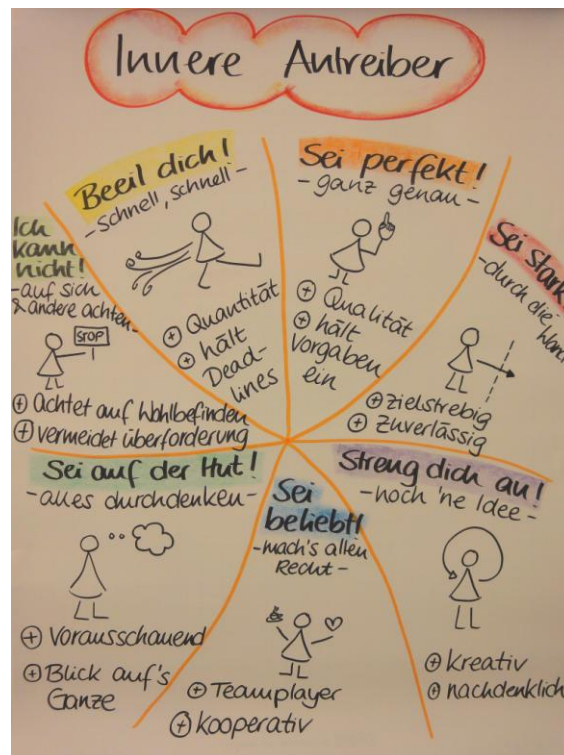 Innere Antreiber
Beeil dich!
-schnell, schnell-
⊕ Quantität
⊕ hält
Dead-
lines
Sei perfekt!
-ganz genau-
⊕ Qualität
⊕ hält
Vorgaben
ein
Sei stark
-durch die
Wand
⊕ zielstrebig
⊕ Zuverlässig
Ich
kann
nicht!
-auf sich
& andere achten-
STOP
⊕ achtet auf Wohlbefinden
⊕ vermeidet überforderung
Sei auf der Hut!
-alles durchdenken-
⊕ Vorausschauend
⊕ Blick auf's
Ganze
Sei
beliebt!
-mach's allen
Recht-
⊕ Teamplayer
⊕ kooperativ
Streng dich an!
-noch 'ne Idee-
⊕ kreativ
⊕ nachdenklich